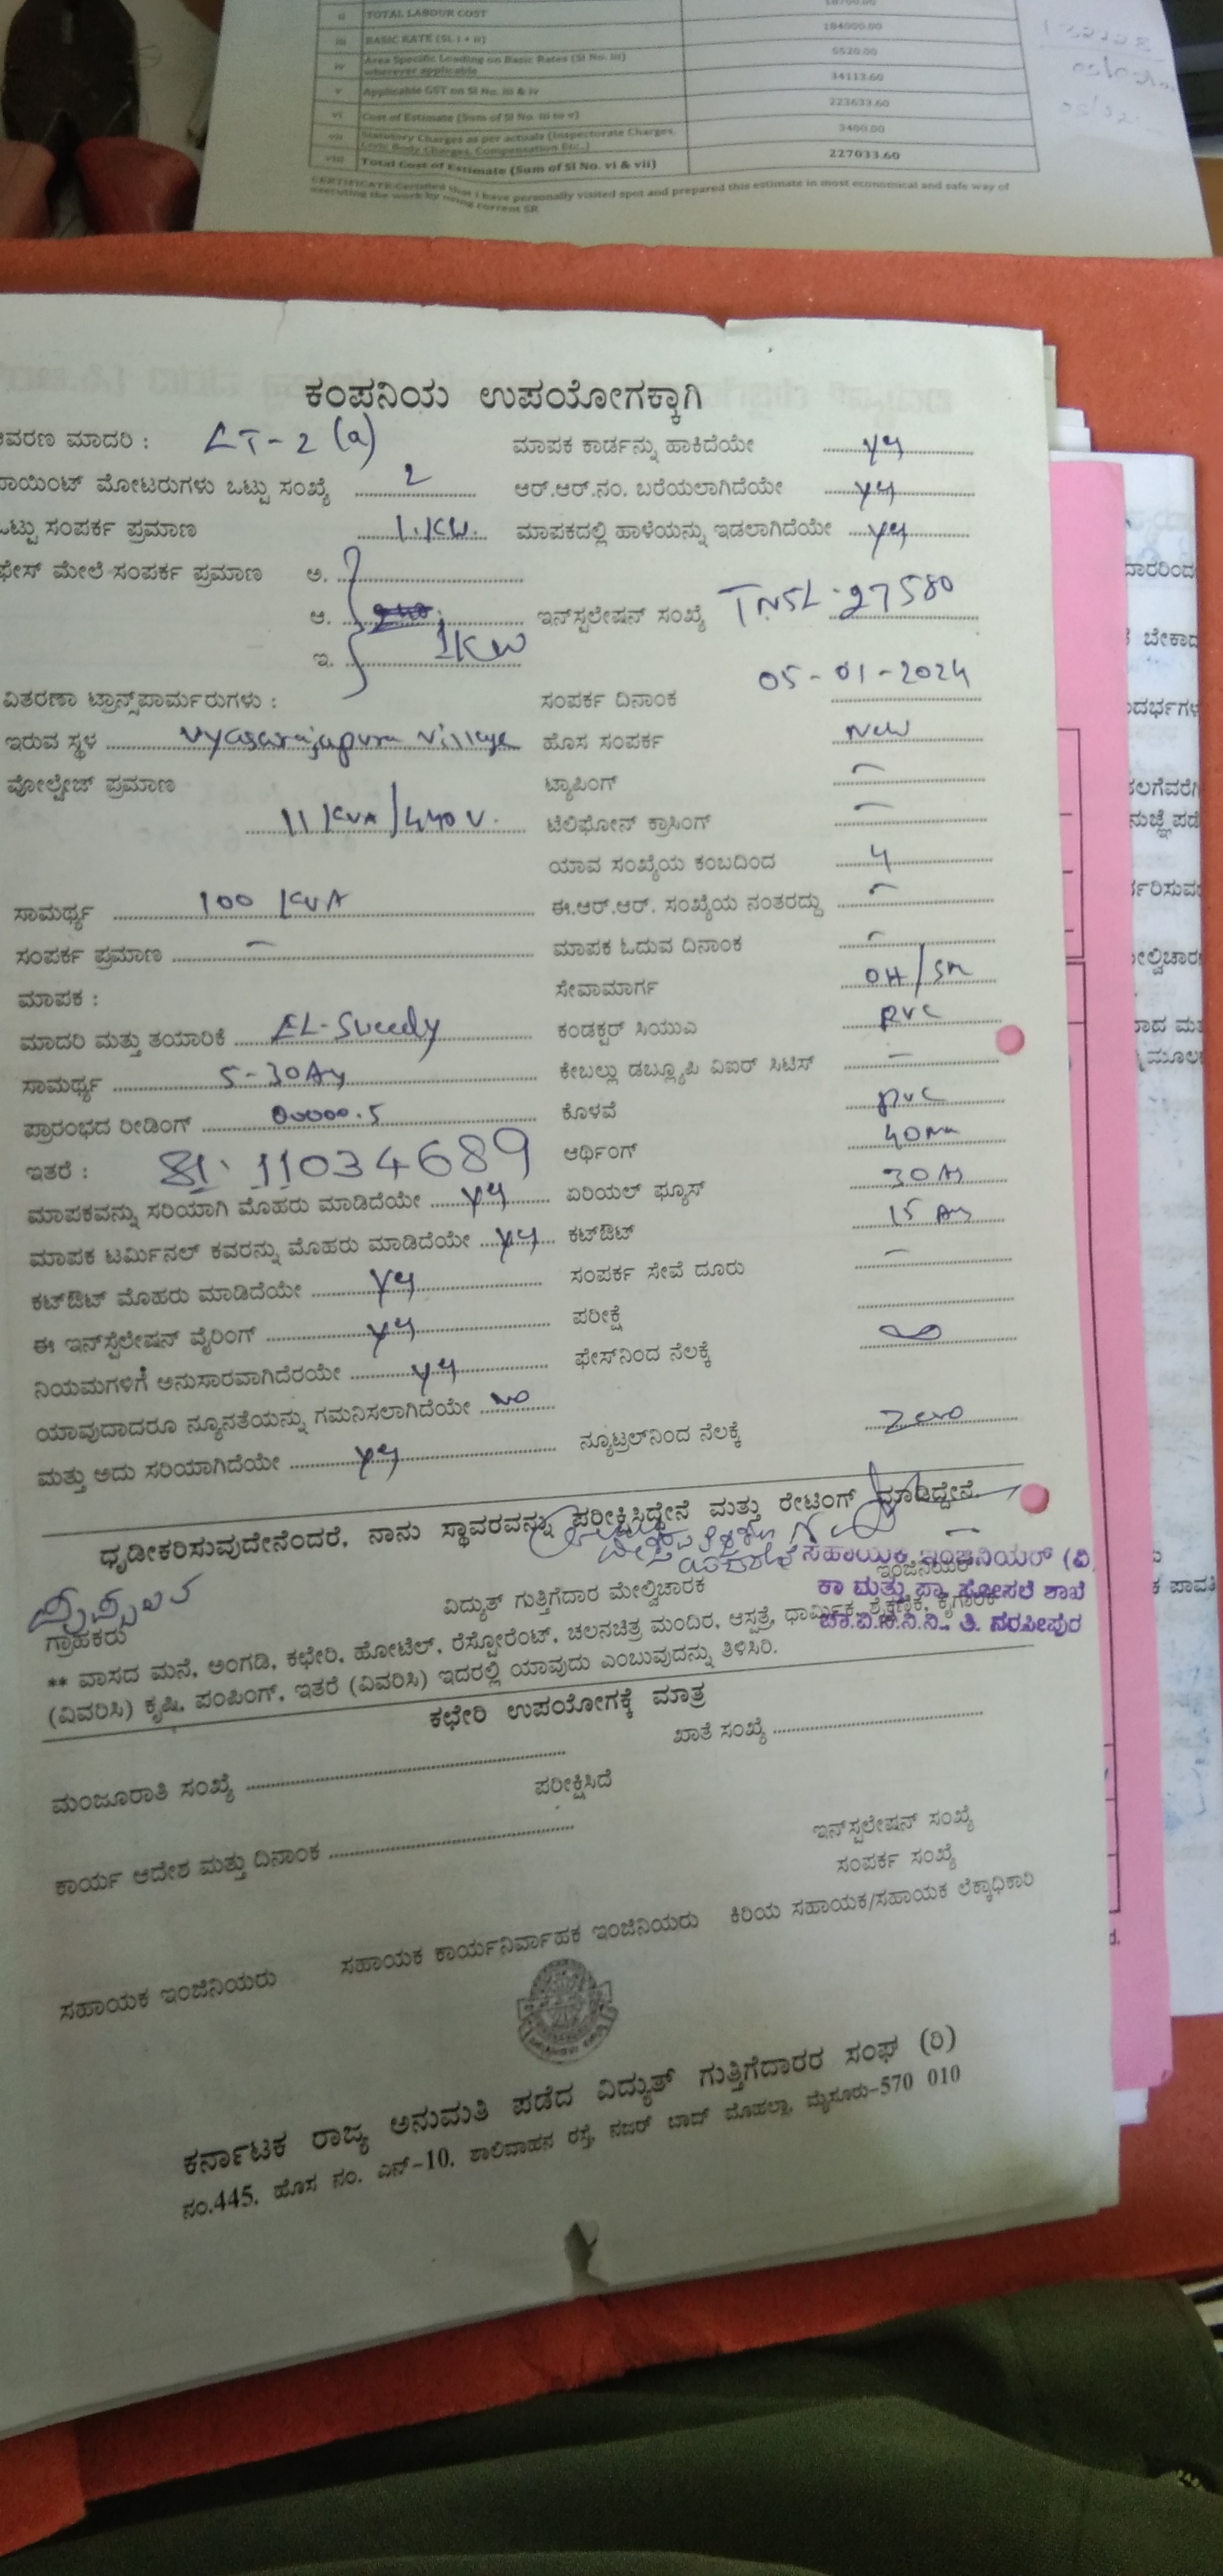 ii TOTAL LABOUR COST
iii BASIC RATE (SL i + ii) 184000.00
iv Area Specific Loading on Basic Rates (Sl No. iii) wherever applicable 5520.00
v Applicable GST on Sl No. iii & iv 34113.60
vi Cost of Estimate (Sum of Sl No. iii to v) 223633.60
vii Statutory Charges as per actuals (Inspectorate Charges, Civic Body Charges, Compensation Etc.,) 3400.00
viii Total Cost of Estimate (Sum of Sl No. vi & vii) 227033.60
CERTIFICATE:Certified that I have personally visited spot and prepared this estimate in most economical and safe way of
executing the work by using current SR
ಕಂಪನಿಯ ಉಪಯೋಗಕ್ಕಾಗಿ
ಆವರಣ ಮಾದರಿ : LT-2 (a) ಮಾಪಕ ಕಾರ್ಡನ್ನು ಹಾಕಿದೆಯೇ
ಪಾಯಿಂಟ್ ಮೋಟರುಗಳು ಒಟ್ಟು ಸಂಖ್ಯೆ 2 ಆರ್.ಆರ್.ನಂ. ಬರೆಯಲಾಗಿದೆಯೇ
ಒಟ್ಟು ಸಂಪರ್ಕ ಪ್ರಮಾಣ 1.KW. ಮಾಪಕದಲ್ಲಿ ಹಾಳೆಯನ್ನು ಇಡಲಾಗಿದೆಯೇ
ಫೇಸ್ ಮೇಲೆ ಸಂಪರ್ಕ ಪ್ರಮಾಣ ಅ.
ಆ. ಇನ್‌ಸ್ಟಲೇಷನ್ ಸಂಖ್ಯೆ TNSL-27580
ಇ. 1KW
ವಿತರಣಾ ಟ್ರಾನ್ಸ್‌ಪಾರ್ಮರುಗಳು : ಸಂಪರ್ಕ ದಿನಾಂಕ 05-01-2024
ಇರುವ ಸ್ಥಳ Vyasarajapura Village ಹೊಸ ಸಂಪರ್ಕ New
ವೋಲ್ಟೇಜ್ ಪ್ರಮಾಣ ಟ್ಯಾಪಿಂಗ್
11 KVA/440V. ಟೆಲಿಫೋನ್ ಕ್ರಾಸಿಂಗ್
ಯಾವ ಸಂಖ್ಯೆಯ ಕಂಬದಿಂದ 4
ಸಾಮರ್ಥ್ಯ 100 KVA ಈ.ಆರ್.ಆರ್. ಸಂಖ್ಯೆಯ ನಂತರದ್ದು
ಸಂಪರ್ಕ ಪ್ರಮಾಣ ಮಾಪಕ ಓದುವ ದಿನಾಂಕ
ಮಾಪಕ : ಸೇವಾಮಾರ್ಗ OH/SM
ಮಾದರಿ ಮತ್ತು ತಯಾರಿಕೆ EL-Sweedy ಕಂಡಕ್ಟರ್ ಸಿಯುಎ PVC
ಸಾಮರ್ಥ್ಯ 5-30A ಕೇಬಲ್ಲು ಡಬ್ಲ್ಯೂಪಿ ವಿಐರ್ ಸಿಟಿಸ್
ಪ್ರಾರಂಭದ ರೀಡಿಂಗ್ 00000.5 ಕೊಳವೆ PVC
ಇತರೆ : 11034689 ಆರ್ಥಿಂಗ್ 40mm
ಮಾಪಕವನ್ನು ಸರಿಯಾಗಿ ಮೊಹರು ಮಾಡಿದೆಯೇ ಏರಿಯಲ್ ಫ್ಯೂಸ್ 30A
ಮಾಪಕ ಟರ್ಮಿನಲ್ ಕವರನ್ನು ಮೊಹರು ಮಾಡಿದೆಯೇ ಕಟ್‌ಔಟ್ 15
ಕಟ್‌ಔಟ್ ಮೊಹರು ಮಾಡಿದೆಯೇ ಸಂಪರ್ಕ ಸೇವೆ ದೂರು
ಈ ಇನ್‌ಸ್ಟೆಲೇಷನ್ ವೈರಿಂಗ್ ಪರೀಕ್ಷೆ
ನಿಯಮಗಳಿಗೆ ಅನುಸಾರವಾಗಿದೆರಯೇ ಫೇಸ್‌ನಿಂದ ನೆಲಕ್ಕೆ ∞
ಯಾವುದಾದರೂ ನ್ಯೂನತೆಯನ್ನು ಗಮನಿಸಲಾಗಿದೆಯೇ no
ಮತ್ತು ಅದು ಸರಿಯಾಗಿದೆಯೇ ನ್ಯೂಟ್ರಲ್‌ನಿಂದ ನೆಲಕ್ಕೆ Zero
ಧೃಡೀಕರಿಸುವುದೇನೆಂದರೆ, ನಾನು ಸ್ಥಾವರವನ್ನು ಪರೀಕ್ಷಿಸಿದ್ದೇನೆ ಮತ್ತು ರೇಟಿಂಗ್ ಮಾಡಿದ್ದೇನೆ.
ಸಹಾಯಕ ಇಂಜಿನಿಯರ್ (ವಿ)
ಗ್ರಾಹಕರು ವಿದ್ಯುತ್ ಗುತ್ತಿಗೆದಾರ ಮೇಲ್ವಿಚಾರಕ ಇಂಜಿನಿಯರ್
ಕಾ ಮತ್ತು ಪಾ, ಸೋಸಲೆ ಶಾಖೆ
ಚಾ.ವಿ.ಸ.ನಿ.ನಿ., ತಿ. ನರಸೀಪುರ
** ವಾಸದ ಮನೆ, ಅಂಗಡಿ, ಕಛೇರಿ, ಹೋಟೆಲ್, ರೆಸ್ಟೋರೆಂಟ್, ಚಲನಚಿತ್ರ ಮಂದಿರ, ಆಸ್ಪತ್ರೆ, ಧಾರ್ಮಿಕ, ಶೈಕ್ಷಣಿಕ, ಕೈಗಾರಿಕೆ
(ವಿವರಿಸಿ) ಕೃಷಿ, ಪಂಪಿಂಗ್, ಇತರೆ (ವಿವರಿಸಿ) ಇದರಲ್ಲಿ ಯಾವುದು ಎಂಬುವುದನ್ನು ತಿಳಿಸಿರಿ.
ಕಛೇರಿ ಉಪಯೋಗಕ್ಕೆ ಮಾತ್ರ
ಮಂಜೂರಾತಿ ಸಂಖ್ಯೆ ಖಾತೆ ಸಂಖ್ಯೆ
ಪರೀಕ್ಷಿಸಿದೆ
ಕಾರ್ಯ ಆದೇಶ ಮತ್ತು ದಿನಾಂಕ ಇನ್‌ಸ್ಟಲೇಷನ್ ಸಂಖ್ಯೆ
ಸಂಪರ್ಕ ಸಂಖ್ಯೆ
ಸಹಾಯಕ ಇಂಜಿನಿಯರು ಸಹಾಯಕ ಕಾರ್ಯನಿರ್ವಾಹಕ ಇಂಜಿನಿಯರು ಕಿರಿಯ ಸಹಾಯಕ/ಸಹಾಯಕ ಲೆಕ್ಕಾಧಿಕಾರಿ
ಕರ್ನಾಟಕ ರಾಜ್ಯ ಅನುಮತಿ ಪಡೆದ ವಿದ್ಯುತ್ ಗುತ್ತಿಗೆದಾರರ ಸಂಘ (ರಿ)
ನಂ.445, ಹೊಸ ನಂ. ಎನ್-10, ಶಾಲಿವಾಹನ ರಸ್ತೆ, ನಜರ್ ಬಾದ್ ಮೊಹಲ್ಲಾ, ಮೈಸೂರು-570 010